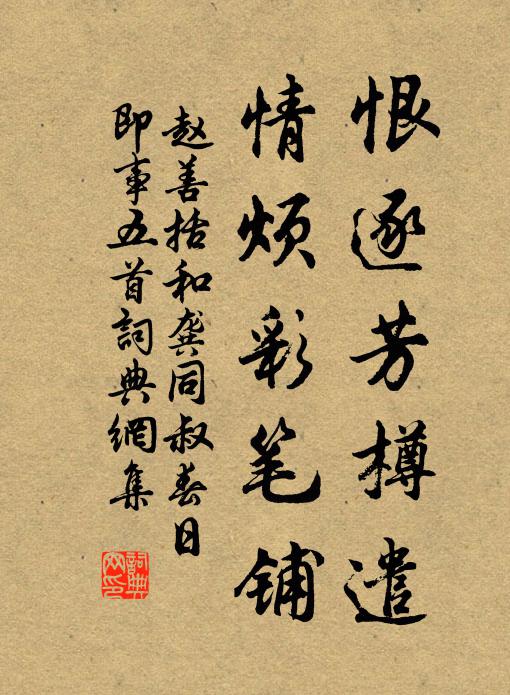 恨逐芳樽遣
情烦彩笔铺
赵善括和龚同叔春日
即事五首詞典網集
詞典网印